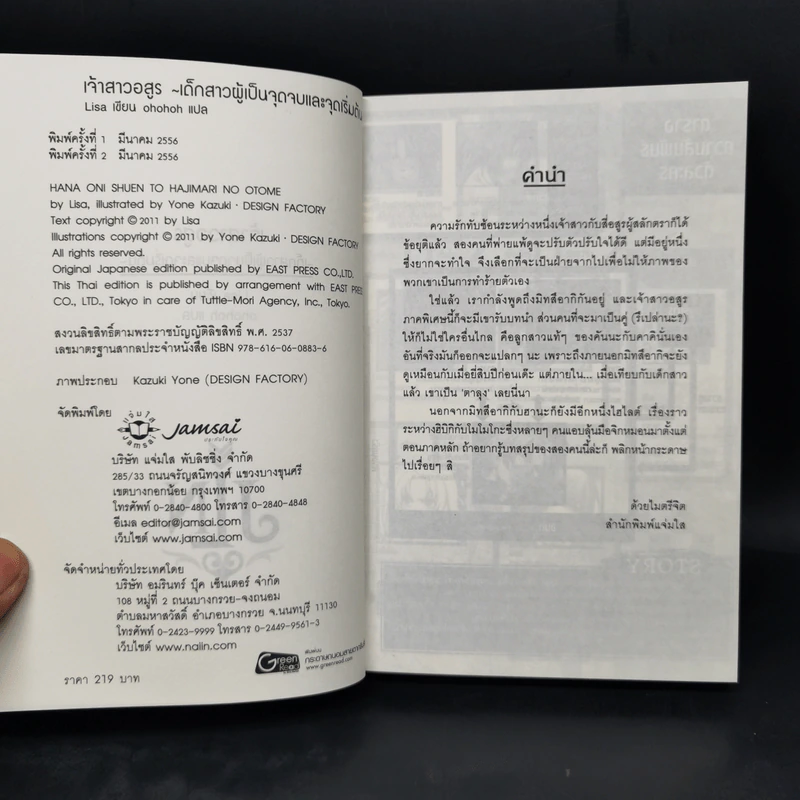 เจ้าสาวอสูร ~เด็กสาวผู้เป็นจุดจบและจุดเริ่มต้น
Lisa เขียน ohohoh แปล
พิมพ์ครั้งที่ 1 มีนาคม 2556
พิมพ์ครั้งที่ 2 มีนาคม 2556
HANA ONI SHUEN TO HAJIMARI NO OTOME
by Lisa, illustrated by Yone Kazuki · DESIGN FACTORY
Text copyright © 2011 by Lisa
Illustrations copyright © 2011 by Yone Kazuki · DESIGN FACTORY
All rights reserved.
Original Japanese edition published by EAST PRESS CO.,LTD.
This Thai edition is published by arrangement with EAST PRESS
CO., LTD., Tokyo in care of Tuttle-Mori Agency, Inc., Tokyo.
สงวนลิขสิทธิ์ตามพระราชบัญญัติลิขสิทธิ์ พ.ศ. 2537
เลขมาตรฐานสากลประจำหนังสือ ISBN 978-616-06-0883-6
ภาพประกอบ Kazuki Yone (DESIGN FACTORY)
จัดพิมพ์โดย
แจ่มใส
JAMSAI
Jamsai
บริษัท แจ่มใส พับลิชชิ่ง จำกัด
285/33 ถนนจรัญสนิทวงศ์ แขวงบางขุนศรี
เขตบางกอกน้อย กรุงเทพฯ 10700
โทรศัพท์ 0-2840-4800 โทรสาร 0-2840-4848
อีเมล editor@jamsai.com
เว็บไซต์ www.jamsai.com
จัดจำหน่ายทั่วประเทศโดย
บริษัท อมรินทร์ บุ๊ค เซ็นเตอร์ จำกัด
108 หมู่ที่ 2 ถนนบางกรวย-จงถนอม
ตำบลมหาสวัสดิ์ อำเภอบางกรวย จ.นนทบุรี 11130
โทรศัพท์ 0-2423-9999 โทรสาร 0-2449-9561-3
เว็บไซต์ www.naiin.com
Green Read
พิมพ์บน
กระดาษถนอมสายตากรีนรี้ด
www.greenread.com
ราคา 219 บาท
คำนำ
ความรักทับซ้อนระหว่างหนึ่งเจ้าสาวกับสี่อสูรผู้สลักตราก็ได้
ข้อยุติแล้ว สองคนที่พ่ายแพ้ดูจะปรับตัวปรับใจได้ดี แต่มีอยู่หนึ่ง
ซึ่งยากจะทำใจ จึงเลือกที่จะเป็นฝ่ายจากไปเพื่อไม่ให้ภาพของ
พวกเขาเป็นการทำร้ายตัวเอง
ใช่แล้ว เรากำลังพูดถึงมิทสึอากิกันอยู่ และเจ้าสาวอสูร
ภาคพิเศษนี้ก็จะมีเขารับบทนำ ส่วนคนที่จะมาเป็นคู่ (รึเปล่านะ?)
ให้ก็ไม่ใช่ใครอื่นไกล คือลูกสาวแท้ๆ ของคันนะกับคาคินั่นเอง
อันที่จริงมันก็ออกจะแปลกๆ นะ เพราะถึงภายนอกมิทสึอากิจะยัง
ดูเหมือนกับเมื่อยี่สิบปีก่อนเด๊ะ แต่ภายใน... เมื่อเทียบกับเด็กสาว
แล้ว เขาเป็น 'ตาลุง' เลยนี่นา
นอกจากมิทสึอากิกับฮานะก็ยังมีอีกหนึ่งไฮไลต์ เรื่องราว
ระหว่างฮิบิกิกับโมโมโกะซึ่งหลายๆ คนแอบลุ้นมือจิกหมอนมาตั้งแต่
ตอนภาคหลัก ถ้าอยากรู้บทสรุปของสองคนนี้ล่ะก็ พลิกหน้ากระดาษ
ไปเรื่อยๆ สิ
ด้วยไมตรีจิต
สำนักพิมพ์แจ่มใส